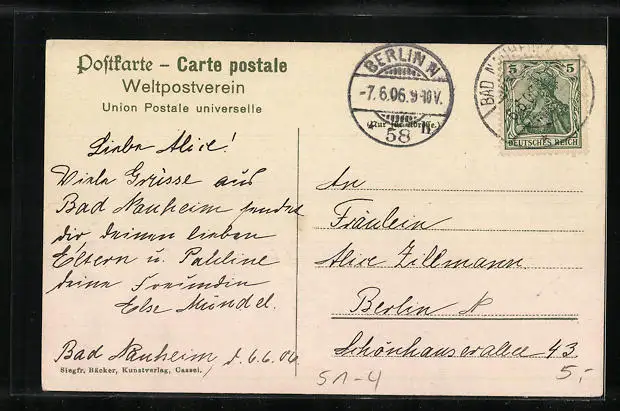 Postkarte – Carte postale
Weltpostverein
Union Postale universelle
Liebe Alice!
Viele Grüsse aus
Bad Nauheim sendet
dir deinen lieben
Eltern u. Pauline
deine Freundin
Else Mündel.
Bad Nauheim, d. 6.6.06
Siegfr. Bäcker, Kunstverlag, Cassel.
BERLIN N
-7.6.06.9-10V.
* 58 n.
BAD
5 5
DEUTSCHES REICH
An
Fräulein
Alice Zillmann
Berlin N
Schönhauserallee 43
51-4
5,-